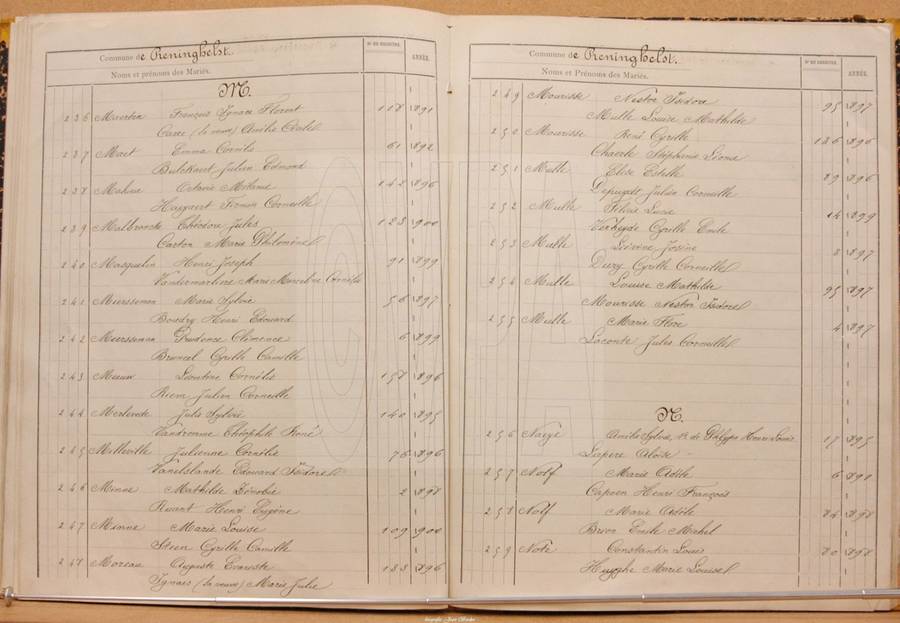 Commune de Reninghelst.
Nos DU REGISTRE.
ANNÉE.
Noms et prénoms des Mariés.
M.
236 Maerten François Ignace Florent 118 1891
Caere (la veuve) Amélie
237 Maet Emma Cornélie 61 1892
Bulckaert Julien Edmond
238 Mahieu Octavie Mélanie 142 1896
Haezaert Firmin Corneille
239 Malbrancke Théodore Jules 123 1900
Carton Marie Philomène
240 Masquelin Henri Joseph 91 1899
Vandermarliere Marie Marceline Cornélie
241 Meersseman Marie Sylvie 56 1897
Boudry Henri Edouard
242 Meersseman Prudence Clémence 6 1899
Bruneel Cyrille Camille
243 Meeuw Léontine Cornélie 157 1896
Riem Julien Corneille
244 Merlevede Jules Sylvie 140 1895
Vandromme Théophile René
245 Milleville Julienne Cornélie 76 1896
Vanelslande Edouard Isidore
246 Minne Mathilde Zénobie 2 1898
Ruant Henri Eugène
247 Minne Marie Louise 109 1900
Steen Cyrille Camille
248 Moreau Auguste Evariste 183 1896
Ignace (la veuve) Marie Julie
Commune de Reninghelst.
Nos DU REGISTRE.
ANNÉE.
Noms et Prénoms des Mariés.
249 Mourisse Nestor Isidore 95 1897
Mulle Louise Mathilde
250 Mourisse René Cyrille 136 1896
Chaerle Stéphanie Léonie
251 Mulle Elise Estelle 89 1896
Depuydt Julien Corneille
252 Mulle Félicie Lucie 14 1899
Verheyde Cyrille Emile
253 Mulle Léonine Josine 8 1897
Dury Cyrille Corneille
254 Mulle Louise Mathilde 95 1897
Mourisse Nestor Isidore
255 Mulle Marie Flore 4 1897
Laconte Jules Corneille
N.
256 Naeye Amélie Sylvie, Ve de Henri Louis 17 1895
Lapere Aloïse
257 Nolf Marie Adèle 6 1891
Capoen Henri François
258 Nolf Marie Adèle 84 1898
Brion Emile Michel
259 Note Constantin Louis 80 1898
Huyghe Marie Louise